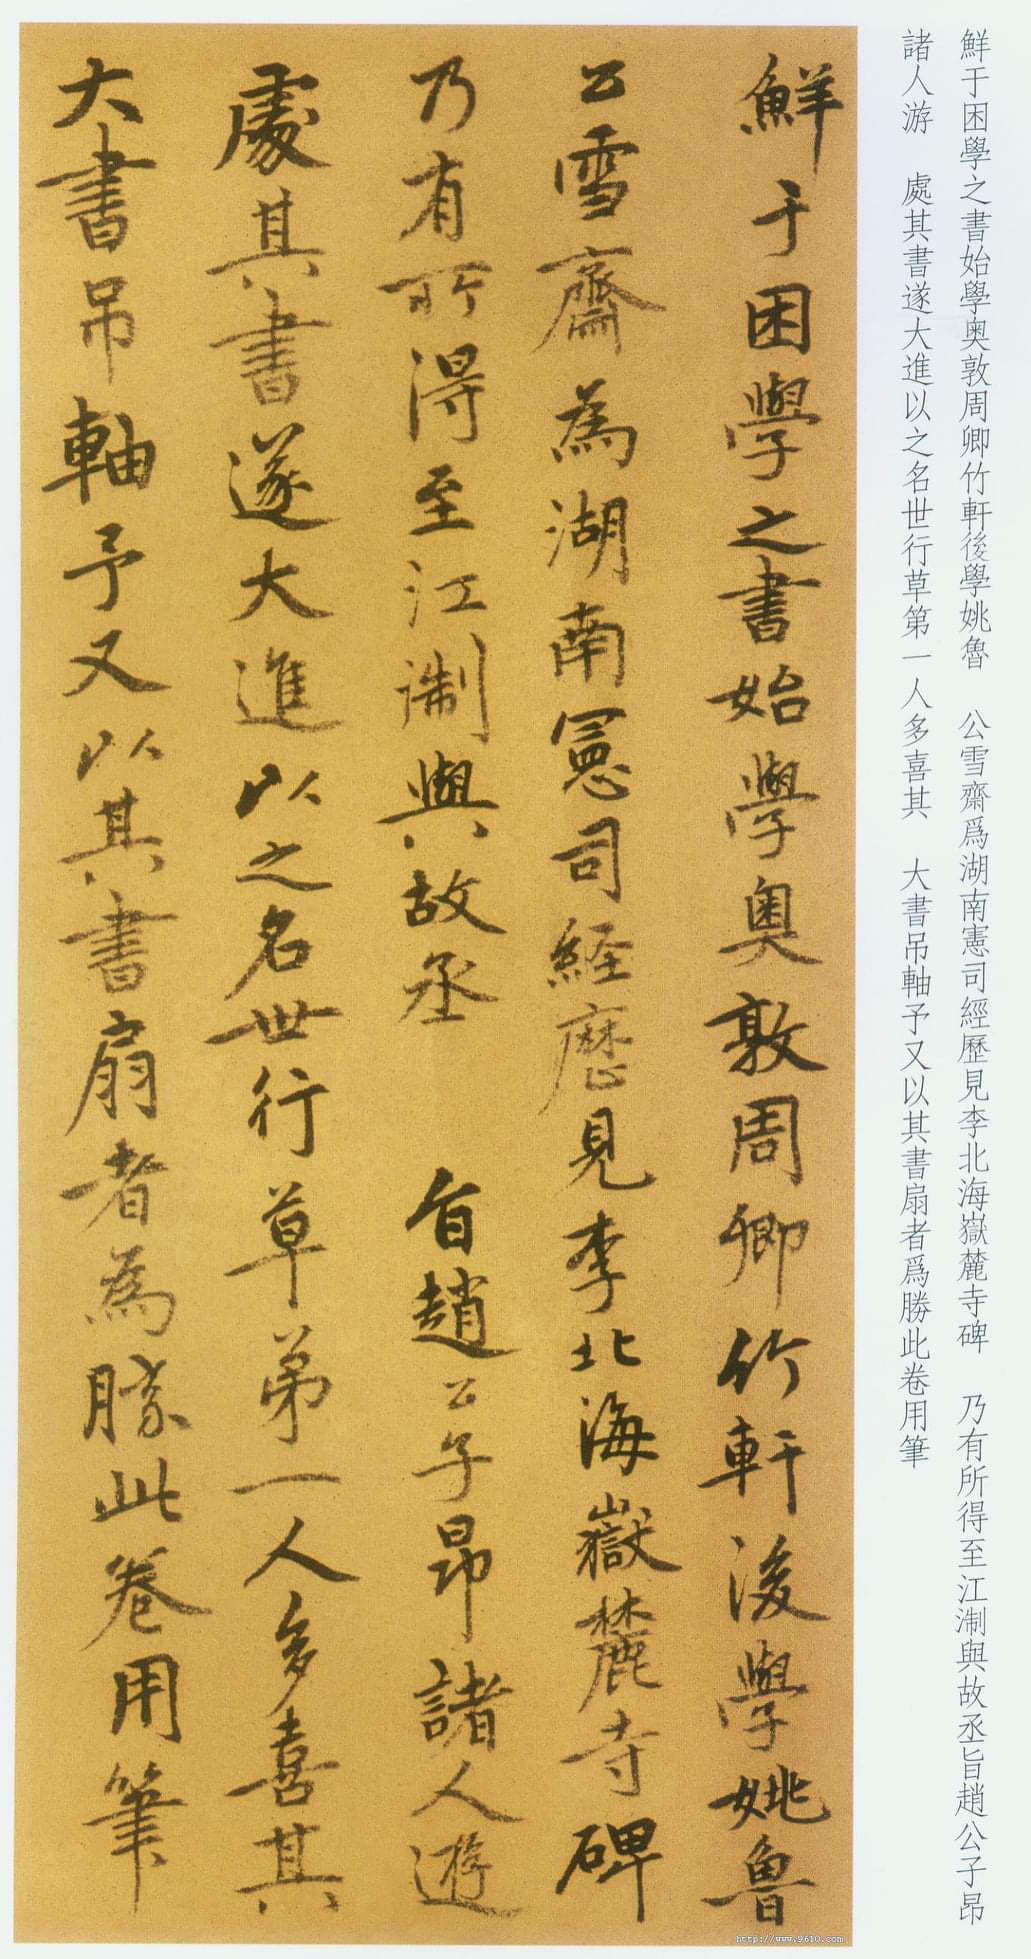 鮮于困學之書始學奧敦周卿竹軒後學姚魯　公雪齋爲湖南憲司經歷見李北海嶽麓寺碑　乃有所得至江淛與故丞旨趙公子昂
諸人游　處其書遂大進以之名世行草第一人多喜其　大書吊軸予又以其書扇者爲勝此卷用筆
鮮于困學之書始學奧敦周卿竹軒後學姚魯
公雪齋為湖南憲司經歷見李北海嶽麓寺碑
乃有所得至江淛與故丞　旨趙公子昂諸人遊
處其書遂大進以之名世行草第一人多喜其
大書吊軸予又以其書扇者為勝此卷用筆
http://www.9610.com